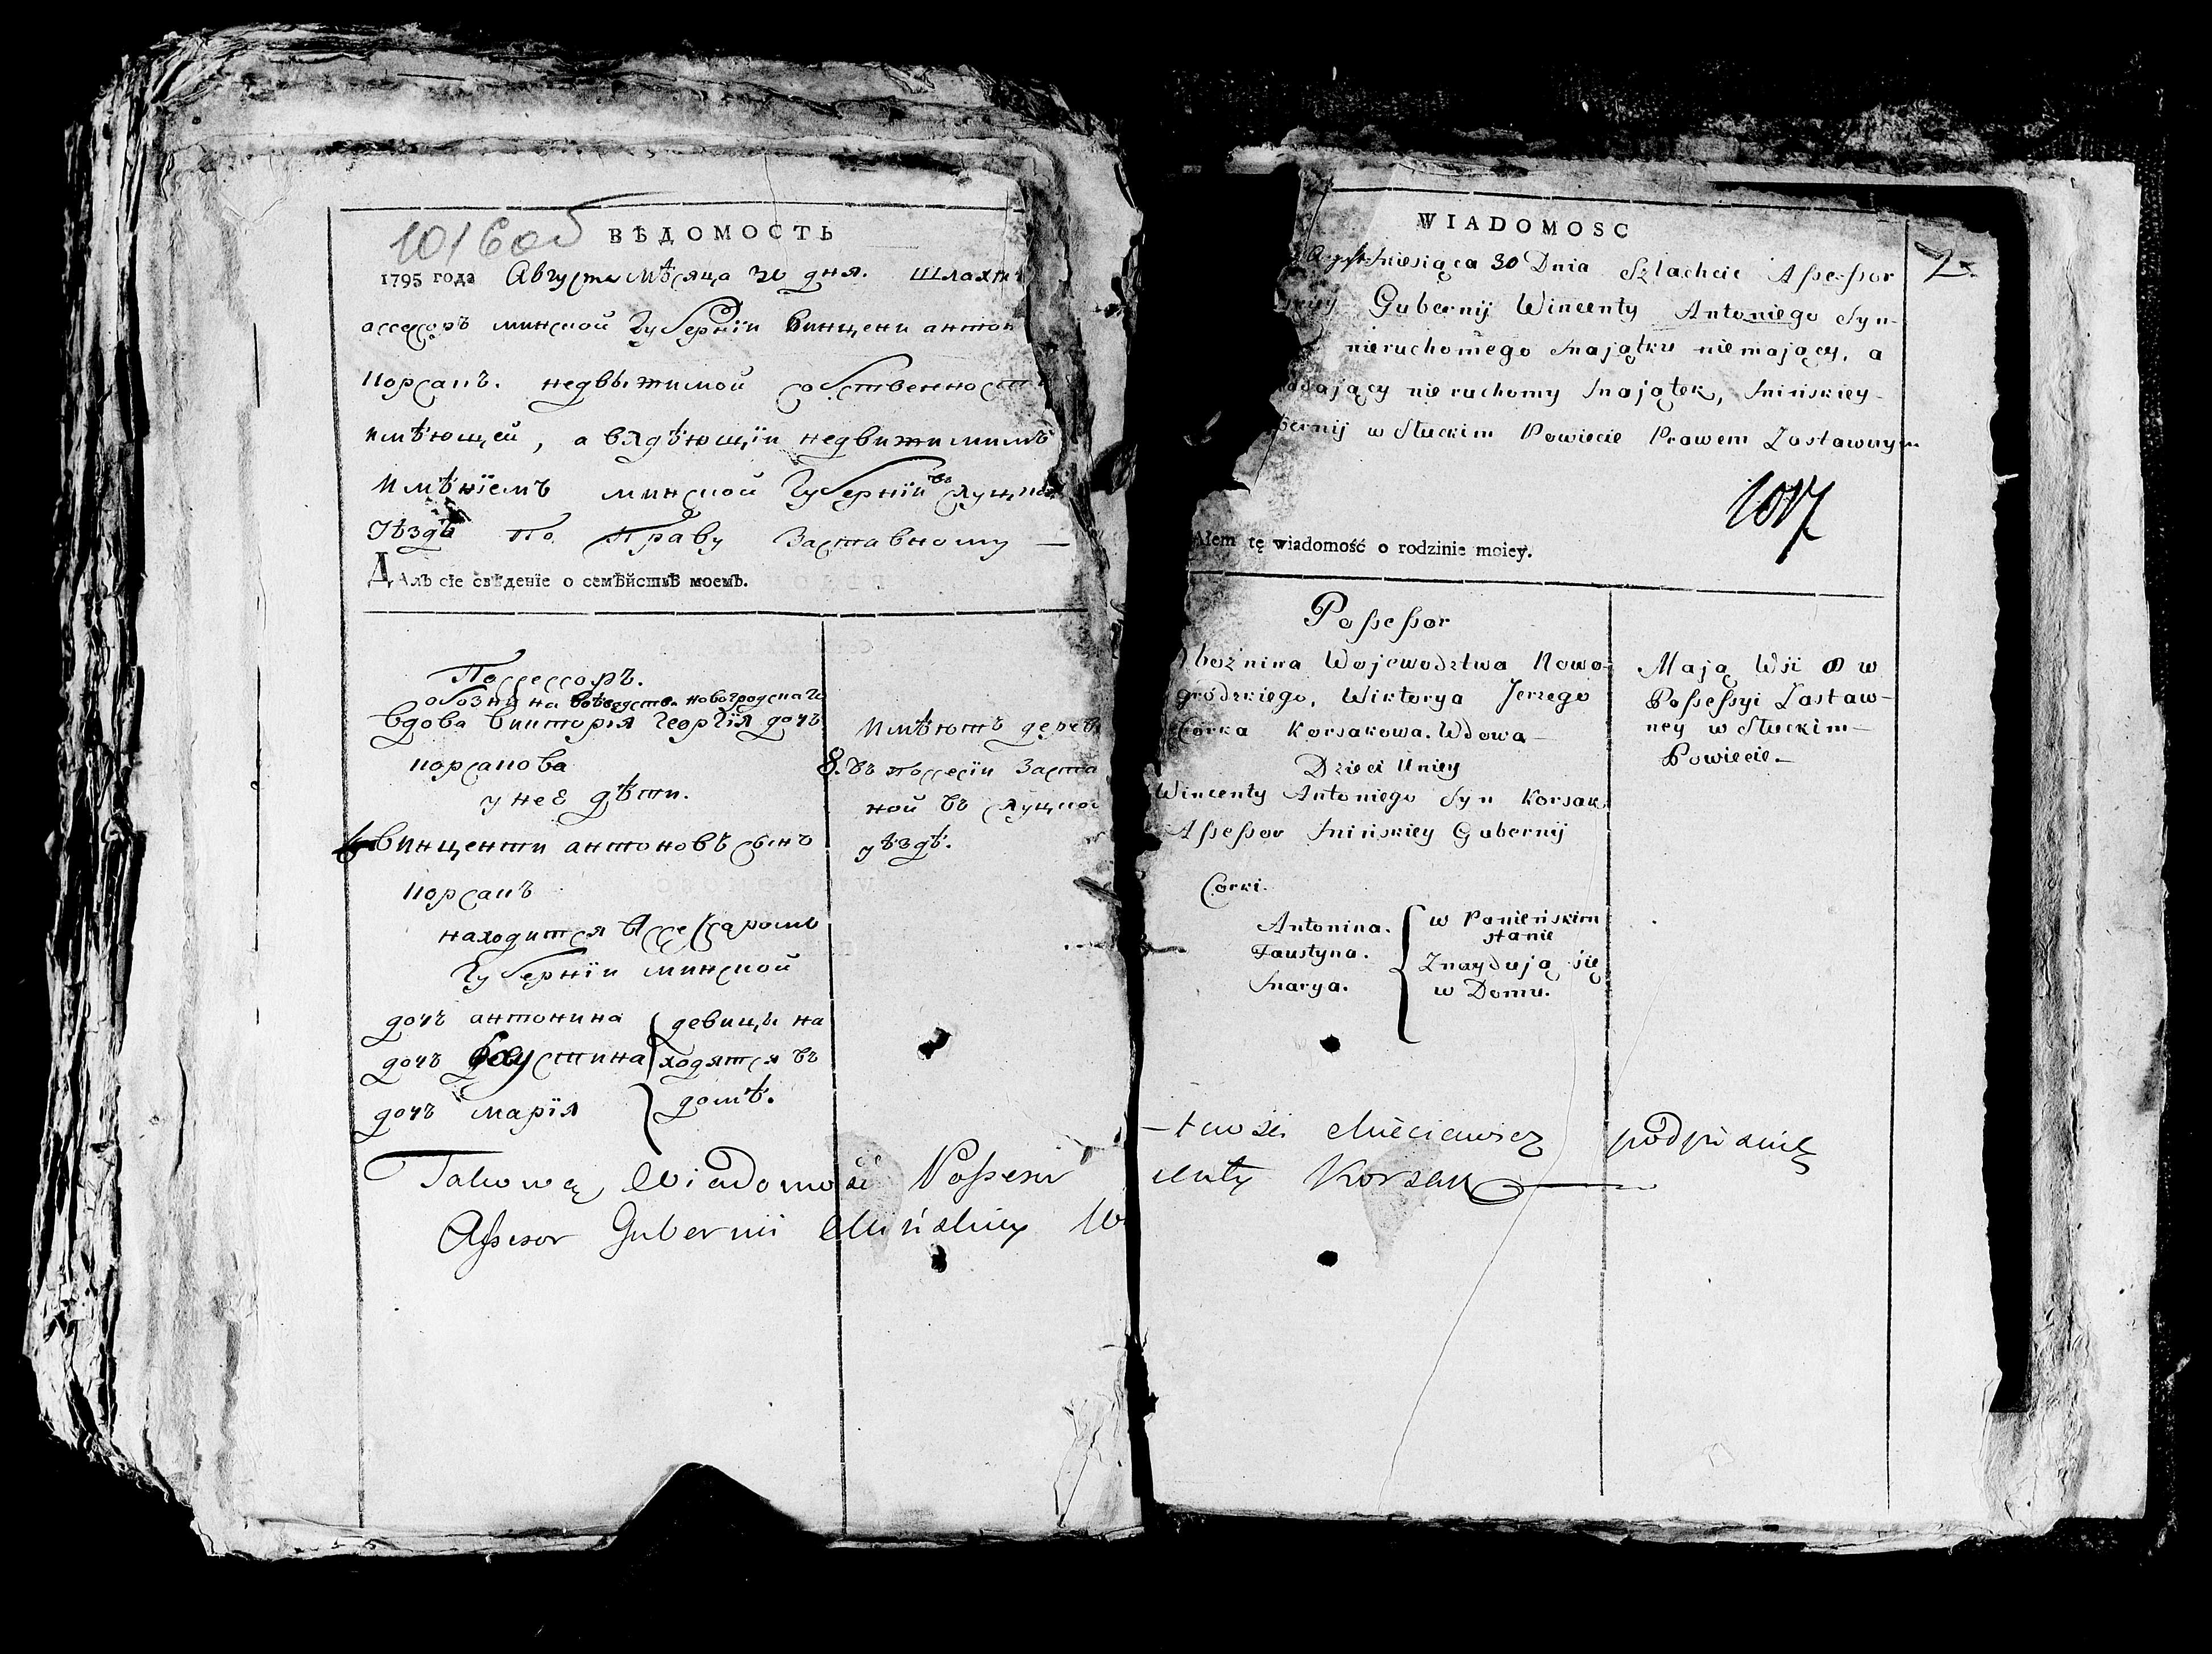 1016 об
ВѢДОМОСТЬ
1795 года Августа мѣсяца 30 дня. Шляхти
ассесоръ минской Губернїи Винцени антон
Корсакъ. недвыжимой собственност
имѣющей, а влдѣющїи недвижимымъ
имѣнїемъ минской Губернїи въ слуцко
уѣздѣ по Праву Заставному —
ДАлъ сїе свѣденїе о семѣйствѣ моемъ.
Поссесоръ.
обознина воеводства новогродскаго
вдова Викторїя Георгїя дочъ
корсакова
у неё дѣти.
Винценти антоновъ сынъ
корсакъ
находится Ассессаромъ
Губернїи минской
дочъ антонина
дочъ фаустина
дочъ марїя
девицы на
ходятся въ
домѣ.
Имѣютъ дерев
8. въ поссесїи Заста
ной въ слуцко
уѣздѣ.
Takową Wiadomość Possesor
Assesor Gubernii Mińskiey W
WIADOMOSC
Miesiąca 30 Dnia Szlachcic Assessor
Gubernij Wincenty Antoniego Syn
nieruchomego Maiątku niemaiący, a
adaiący nieruchomy Maiątek, Mińskiey
bernij w Słuckim Powiecie Prawem Zastawnym
1017
Ałem tę wiadomość o rodzinie moiey.
Possessor
Oboźnina Wojewodztwa Nowo-
grodzkiego, Wiktorya Jerzego
Corka Korsakowa. Wdowa
Dzieci U niey
Wincenty Antoniego Syn Korsak
Assessor Mińskiey Gubernij
Corki.
Antonina.
Faustyna.
Marya.
w Panieńskim
stanie
Znayduią się
w Domu.
Maią Wsi 8 w
Possessyi Zastaw-
ney w Słuckim
Powiecie
podpisuię
centy Korsak